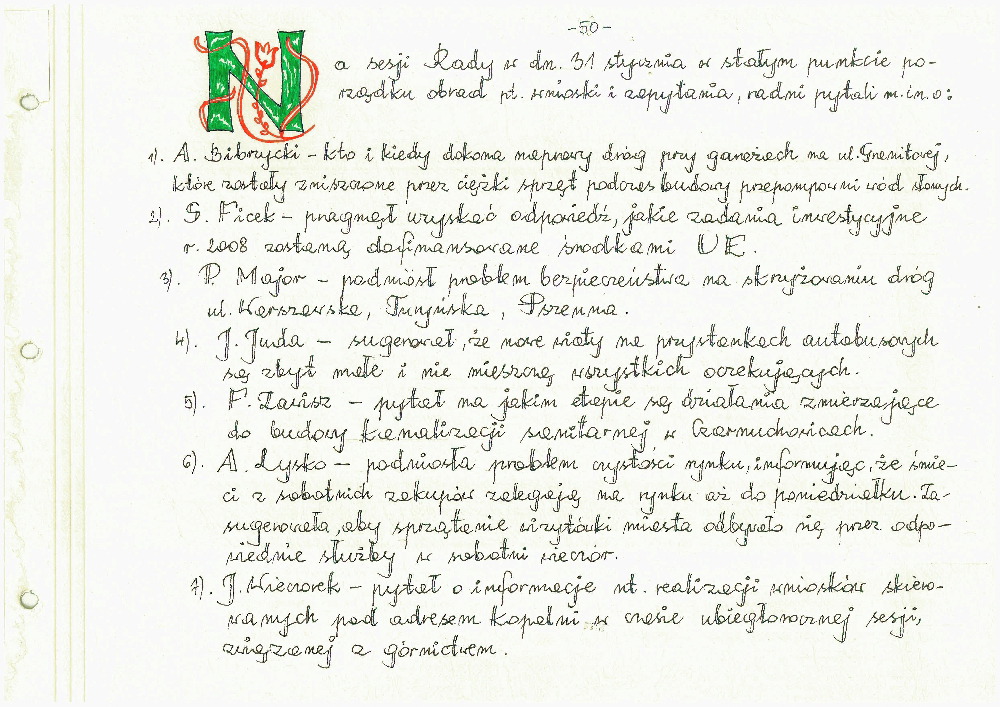 -50-
Na sesji Rady w dn. 31 stycznia w stałym punkcie po-
rządku obrad pt. wnioski i zapytania, radni pytali m.in. o:
1). A. Bibrzycki – kto i kiedy dokona naprawy dróg przy garażach na ul. Granitowej,
które zostały zniszczone przez ciężki sprzęt podczas budowy przepompowni wód słonych.
2). S. Ficek – pragnął uzyskać odpowiedź, jakie zadania inwestycyjne
r. 2008 zostaną dofinansowane środkami UE.
3). P. Major – podniósł problem bezpieczeństwa na skrzyżowaniu dróg
ul. Warszawska, Turyńska, Pszenna.
4). J. Juda – sugerował, że nowe wiaty na przystankach autobusowych
są zbyt małe i nie mieszczą wszystkich oczekujących.
5). F. Zawisz – pytał na jakim etapie są działania zmierzające
do budowy kanalizacji sanitarnej w Czarnuchowicach.
6). A. Łysko – podniosła problem czystości rynku, informując, że śmie-
ci z sobotnich zakupów zalegają na rynku aż do poniedziałku. Za-
sugerowała, aby sprzątanie wizytówki miasta odbywało się przez odpo-
wiednie służby w sobotni wieczór.
7). J. Wieczorek – pytał o informacje nt. realizacji wniosków skiero-
wanych pod adresem kopalni w czasie ubiegłorocznej sesji,
związanej z górnictwem.